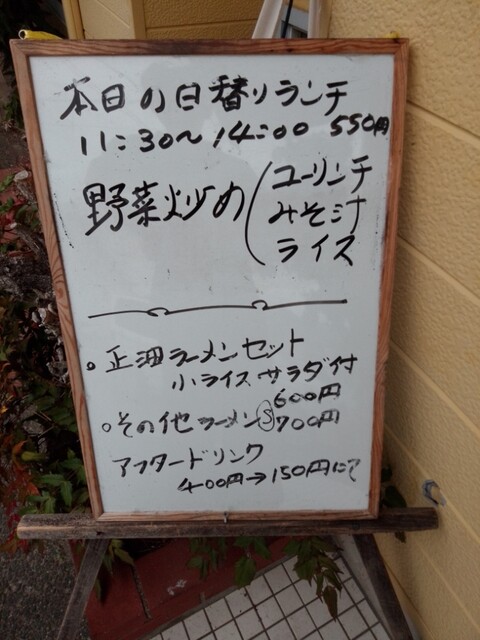 本日の日替りランチ
11:30～14:00 550円
野菜炒め
ユーリンチ
みそ汁
ライス
。正油ラーメンセット
小ライス サラダ付
600円
。その他ラーメンⓈ700円
アフタードリンク
400円→150円にて